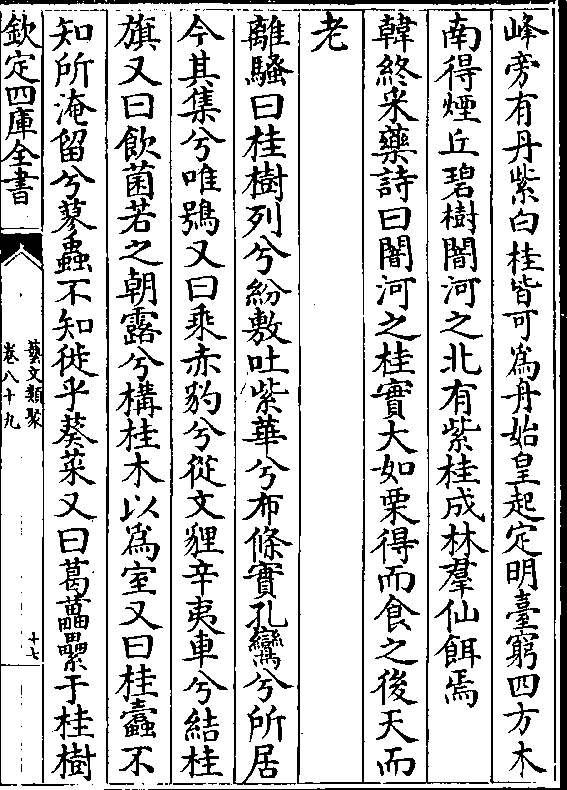 峰旁有丹紫白桂皆可為丹始皇起定明臺窮四方木
南得煙丘碧樹闇河之北有紫桂成林羣仙餌焉
韓終采藥詩曰闇河之桂實大如栗得而食之後天而
老
離騷曰桂樹列兮紛敷吐紫華兮布條實孔鸞兮所居
今其集兮唯鴞又曰乘赤豹兮從文貍辛夷車兮結桂
旗又曰飲菌若之朝露兮構桂木以為室又曰桂蠹不
知所淹留兮蓼蟲不知徙乎葵菜又曰葛藟虆于桂樹
欽定四庫全書
藝文類聚
卷八十九
十七